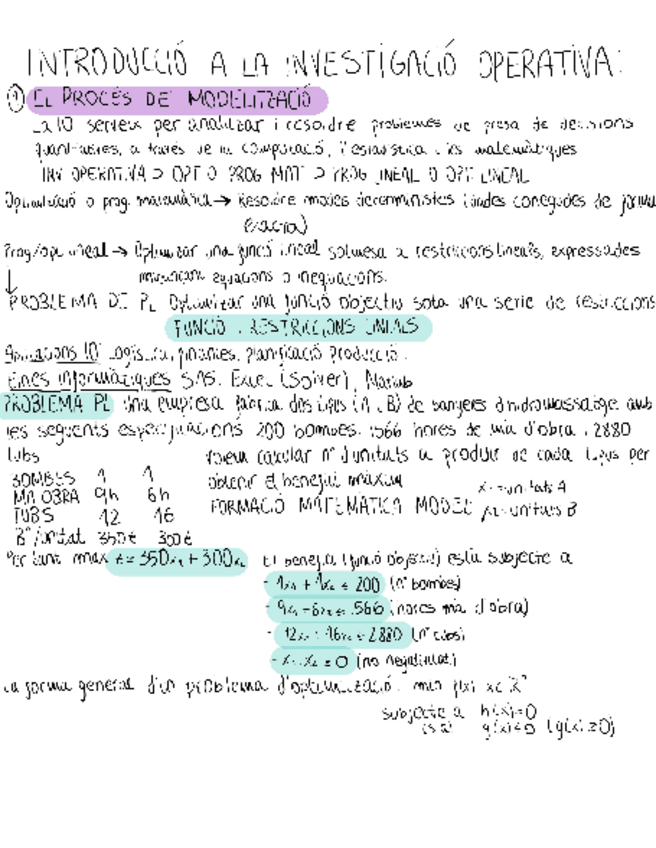 INTRODUCCIÓ A LA INVESTIGACIÓ OPERATIVA:
1 EL PROCÉS DE MODELITZACIÓ
La IO serveix per analitzar i resoldre problemes de presa de decisions
quantitatives, a través de la computació, l'estadística i les matemàtiques
INV OPERATIVA ⊃ OPT O PROG MAT ⊃ PROG LINEAL O OPT LINEAL
Optimització o prog. matemàtica → Resoldre models deterministes (dades conegudes de forma
exacta)
Prog/opt lineal → Optimitzar una funció lineal sotmesa a restriccions lineals, expressades
mitjançant equacions o inequacions.
↓
PROBLEMA DE PL Optimitzar una funció objectiu sota una serie de restriccions
FUNCIÓ I RESTRICCIONS LINIALS
Aplicacions IO Logística, finances, planificació producció.
Eines informàtiques SAS, Excel (Solver), Matlab
PROBLEMA PL Una empresa fabrica dos tipus (A i B) de banyeres d'hidromassatge amb
les seguents especificacions 200 bombes, 1566 hores de mà d'obra i 2880
tubs
Volem calcular nº d'unitats a produir de cada tipus per
obtenir el benefici màxim
BOMBES 1 1
MA OBRA 9h 6h
TUBS 12 16
Bº/unitat 350€ 300€
FORMACIÓ MATEMÀTICA MODEL x₁=unitats A
x₂=unitats B
Per tant max z=350x₁+300x₂ El benefici (funció objectiu) està subjecte a
- 1x₁ + 1x₂ ≤ 200 (nº bombes)
- 9x₁ + 6x₂ ≤ 1566 (hores mà d'obra)
- 12x₁ + 16x₂ ≤ 2880 (nº tubs)
- x₁, x₂ ≥ 0 (no negativitat)
La forma general d'un problema d'optimització: min f(x) x∈ℝⁿ
subjecte a h(x)=0
(s.a) g(x)≤0 (g(x)≥0)